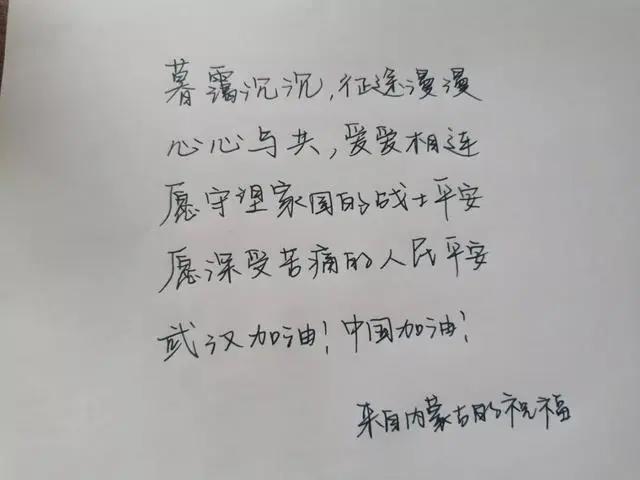 暮霭沉沉,征途漫漫
心心与共,爱爱相连
愿守望家国的战士平安
愿深受苦痛的人民平安
武汉加油!中国加油!
来自内蒙古的祝福